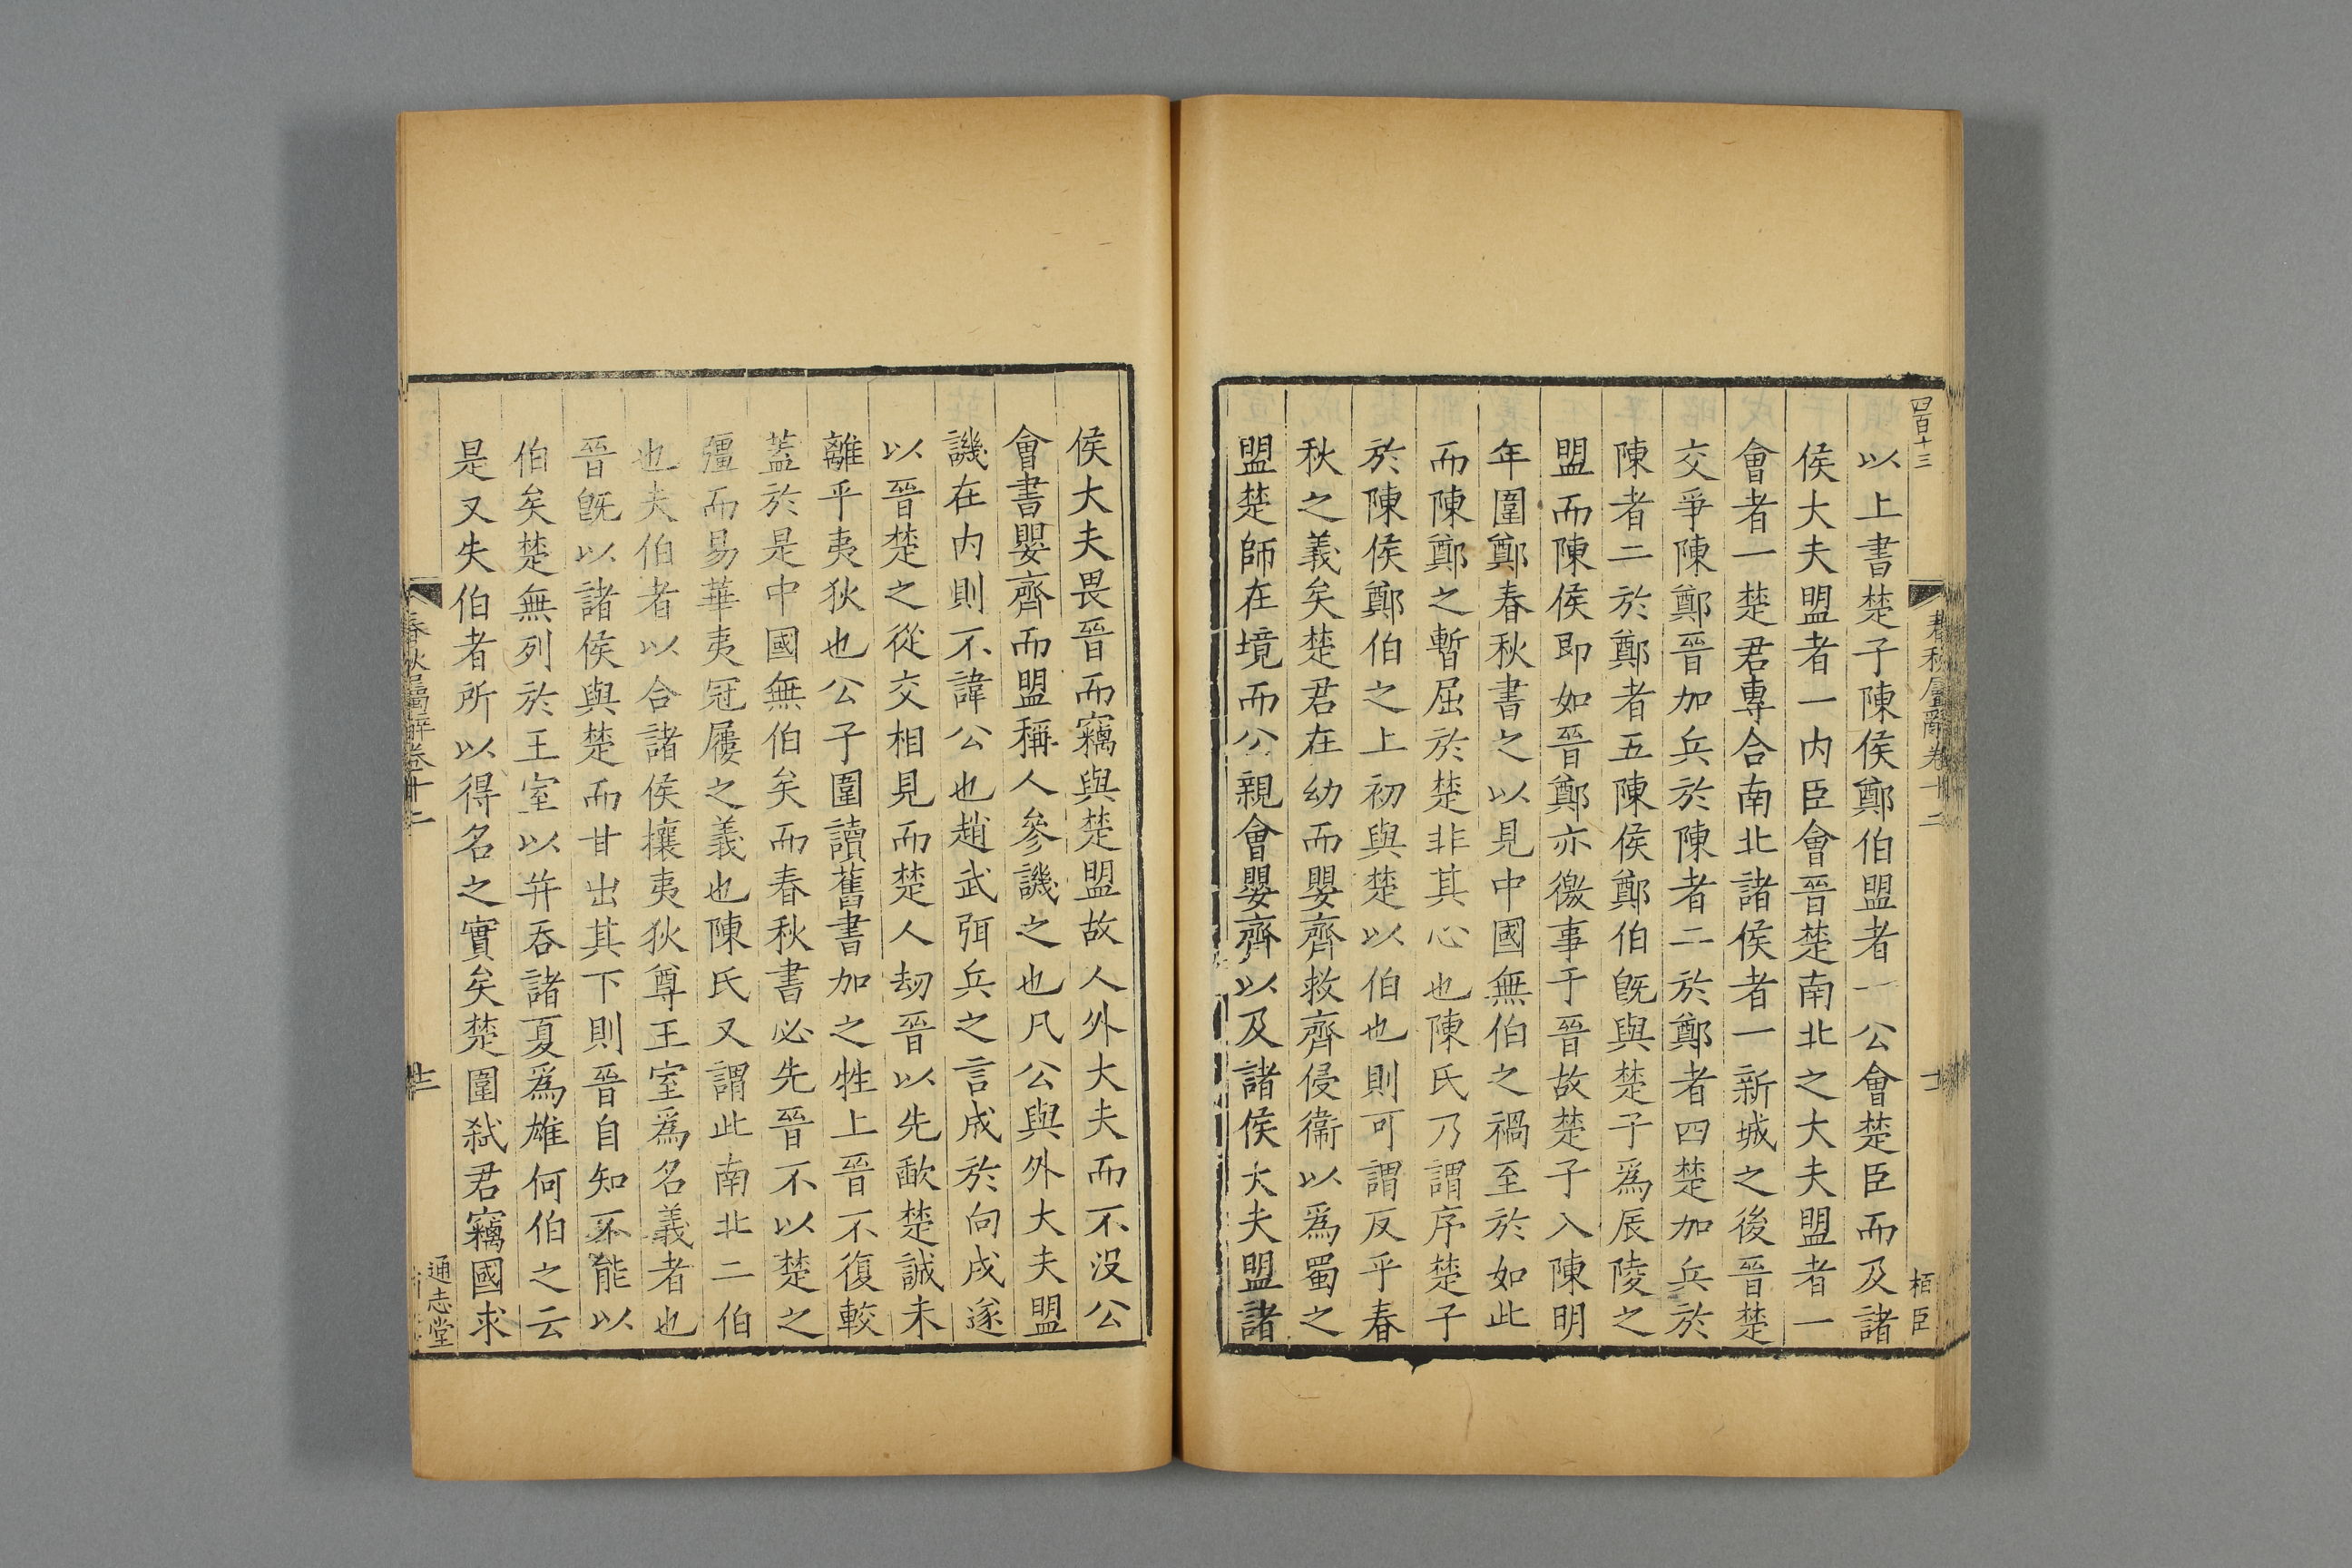 四百十三
春秋屬辭卷十二
栢臣
以上書楚子陳侯鄭伯盟者一公會楚臣而及諸
侯大夫盟者一内臣會晉楚南北之大夫盟者一
會者一楚君專合南北諸侯者一新城之後晉楚
交爭陳鄭晉加兵於陳者二於鄭者四楚加兵於
陳者二於鄭者五陳侯鄭伯旣與楚子爲辰陵之
盟而陳侯即如晉鄭亦徼事于晉故楚子入陳明
年圍鄭春秋書之以見中國無伯之禍至於如此
而陳鄭之暫屈於楚非其心也陳氏乃謂序楚子
於陳侯鄭伯之上初與楚以伯也則可謂反乎春
秋之義矣楚君在幼而嬰齊救齊侵衞以爲蜀之
盟楚師在境而公親會嬰齊以及諸侯大夫盟諸
侯大夫畏晉而竊與楚盟故人外大夫而不没公
會書嬰齊而盟稱人參譏之也凡公與外大夫盟
譏在内則不諱公也趙武弭兵之言成於向戌遂
以晉楚之從交相見而楚人劫晉以先歃楚誠未
離乎夷狄也公子圍讀舊書加之牲上晉不復較
蓋於是中國無伯矣而春秋書必先晉不以楚之
彊而易華夷冠屨之義也陳氏又謂此南北二伯
也夫伯者以合諸侯攘夷狄尊王室爲名義者也
晉旣以諸侯與楚而甘出其下則晉自知不能以
伯矣楚無列於王室以并吞諸夏爲雄何伯之云
是又失伯者所以得名之實矣楚圍弑君竊國求
春秋屬辭卷十二
通志堂